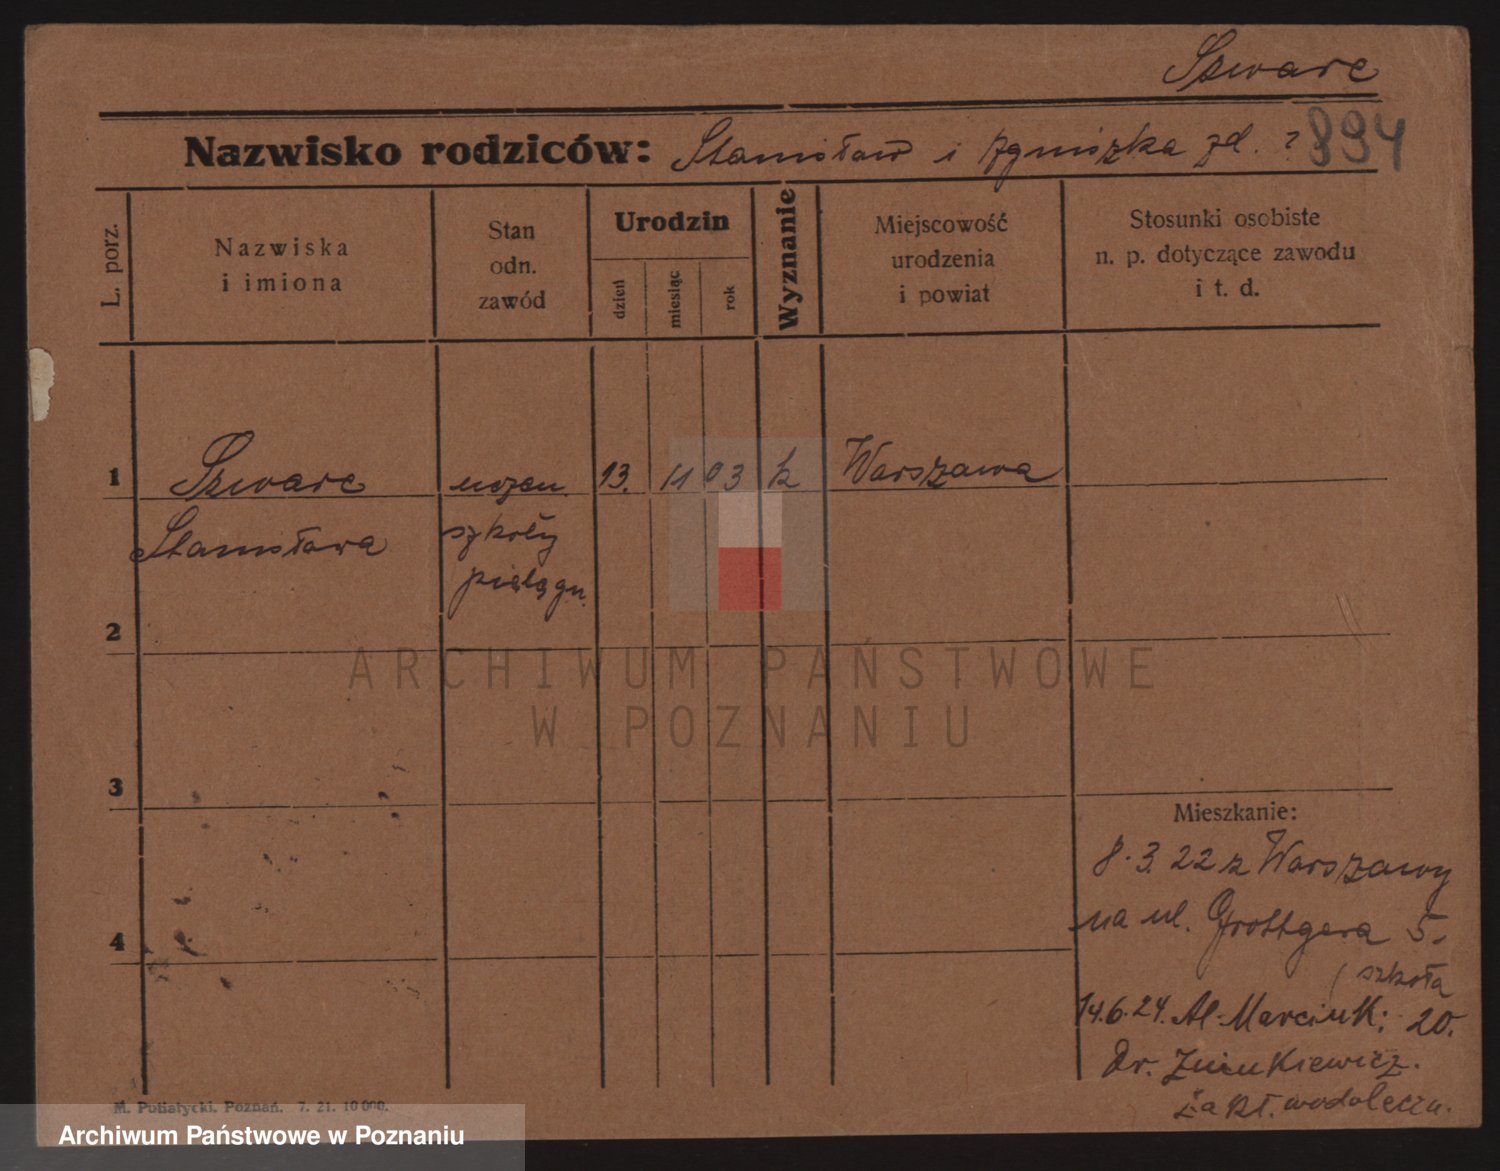 Szwarc
Nazwisko rodziców: Stanisław i Agniszka zd. ? 894
L. porz.
Nazwiska
i imiona
Stan
odn.
zawód
Urodzin
dzień
miesiąc
rok
Wyznanie
Miejscowość
urodzenia
i powiat
Stosunki osobiste
n. p. dotyczące zawodu
i t. d.
1 Szwarc uczen. 13. 11 03 k Warszawa
Stanisława szkoły
pielągn.
2
3
4
Mieszkanie:
8. 3. 22 z Warszawy
na ul. Grottgera 5.
(szkoła
14.6.24. Al. Marcink: 20.
Dr. Żniniewicz.
Zakł. wodoleczn.
M. Putiatycki. Poznań. 7. 21. 10 000.
ARCHIWUM PAŃSTWOWE
W POZNANIU
Archiwum Państwowe w Poznaniu